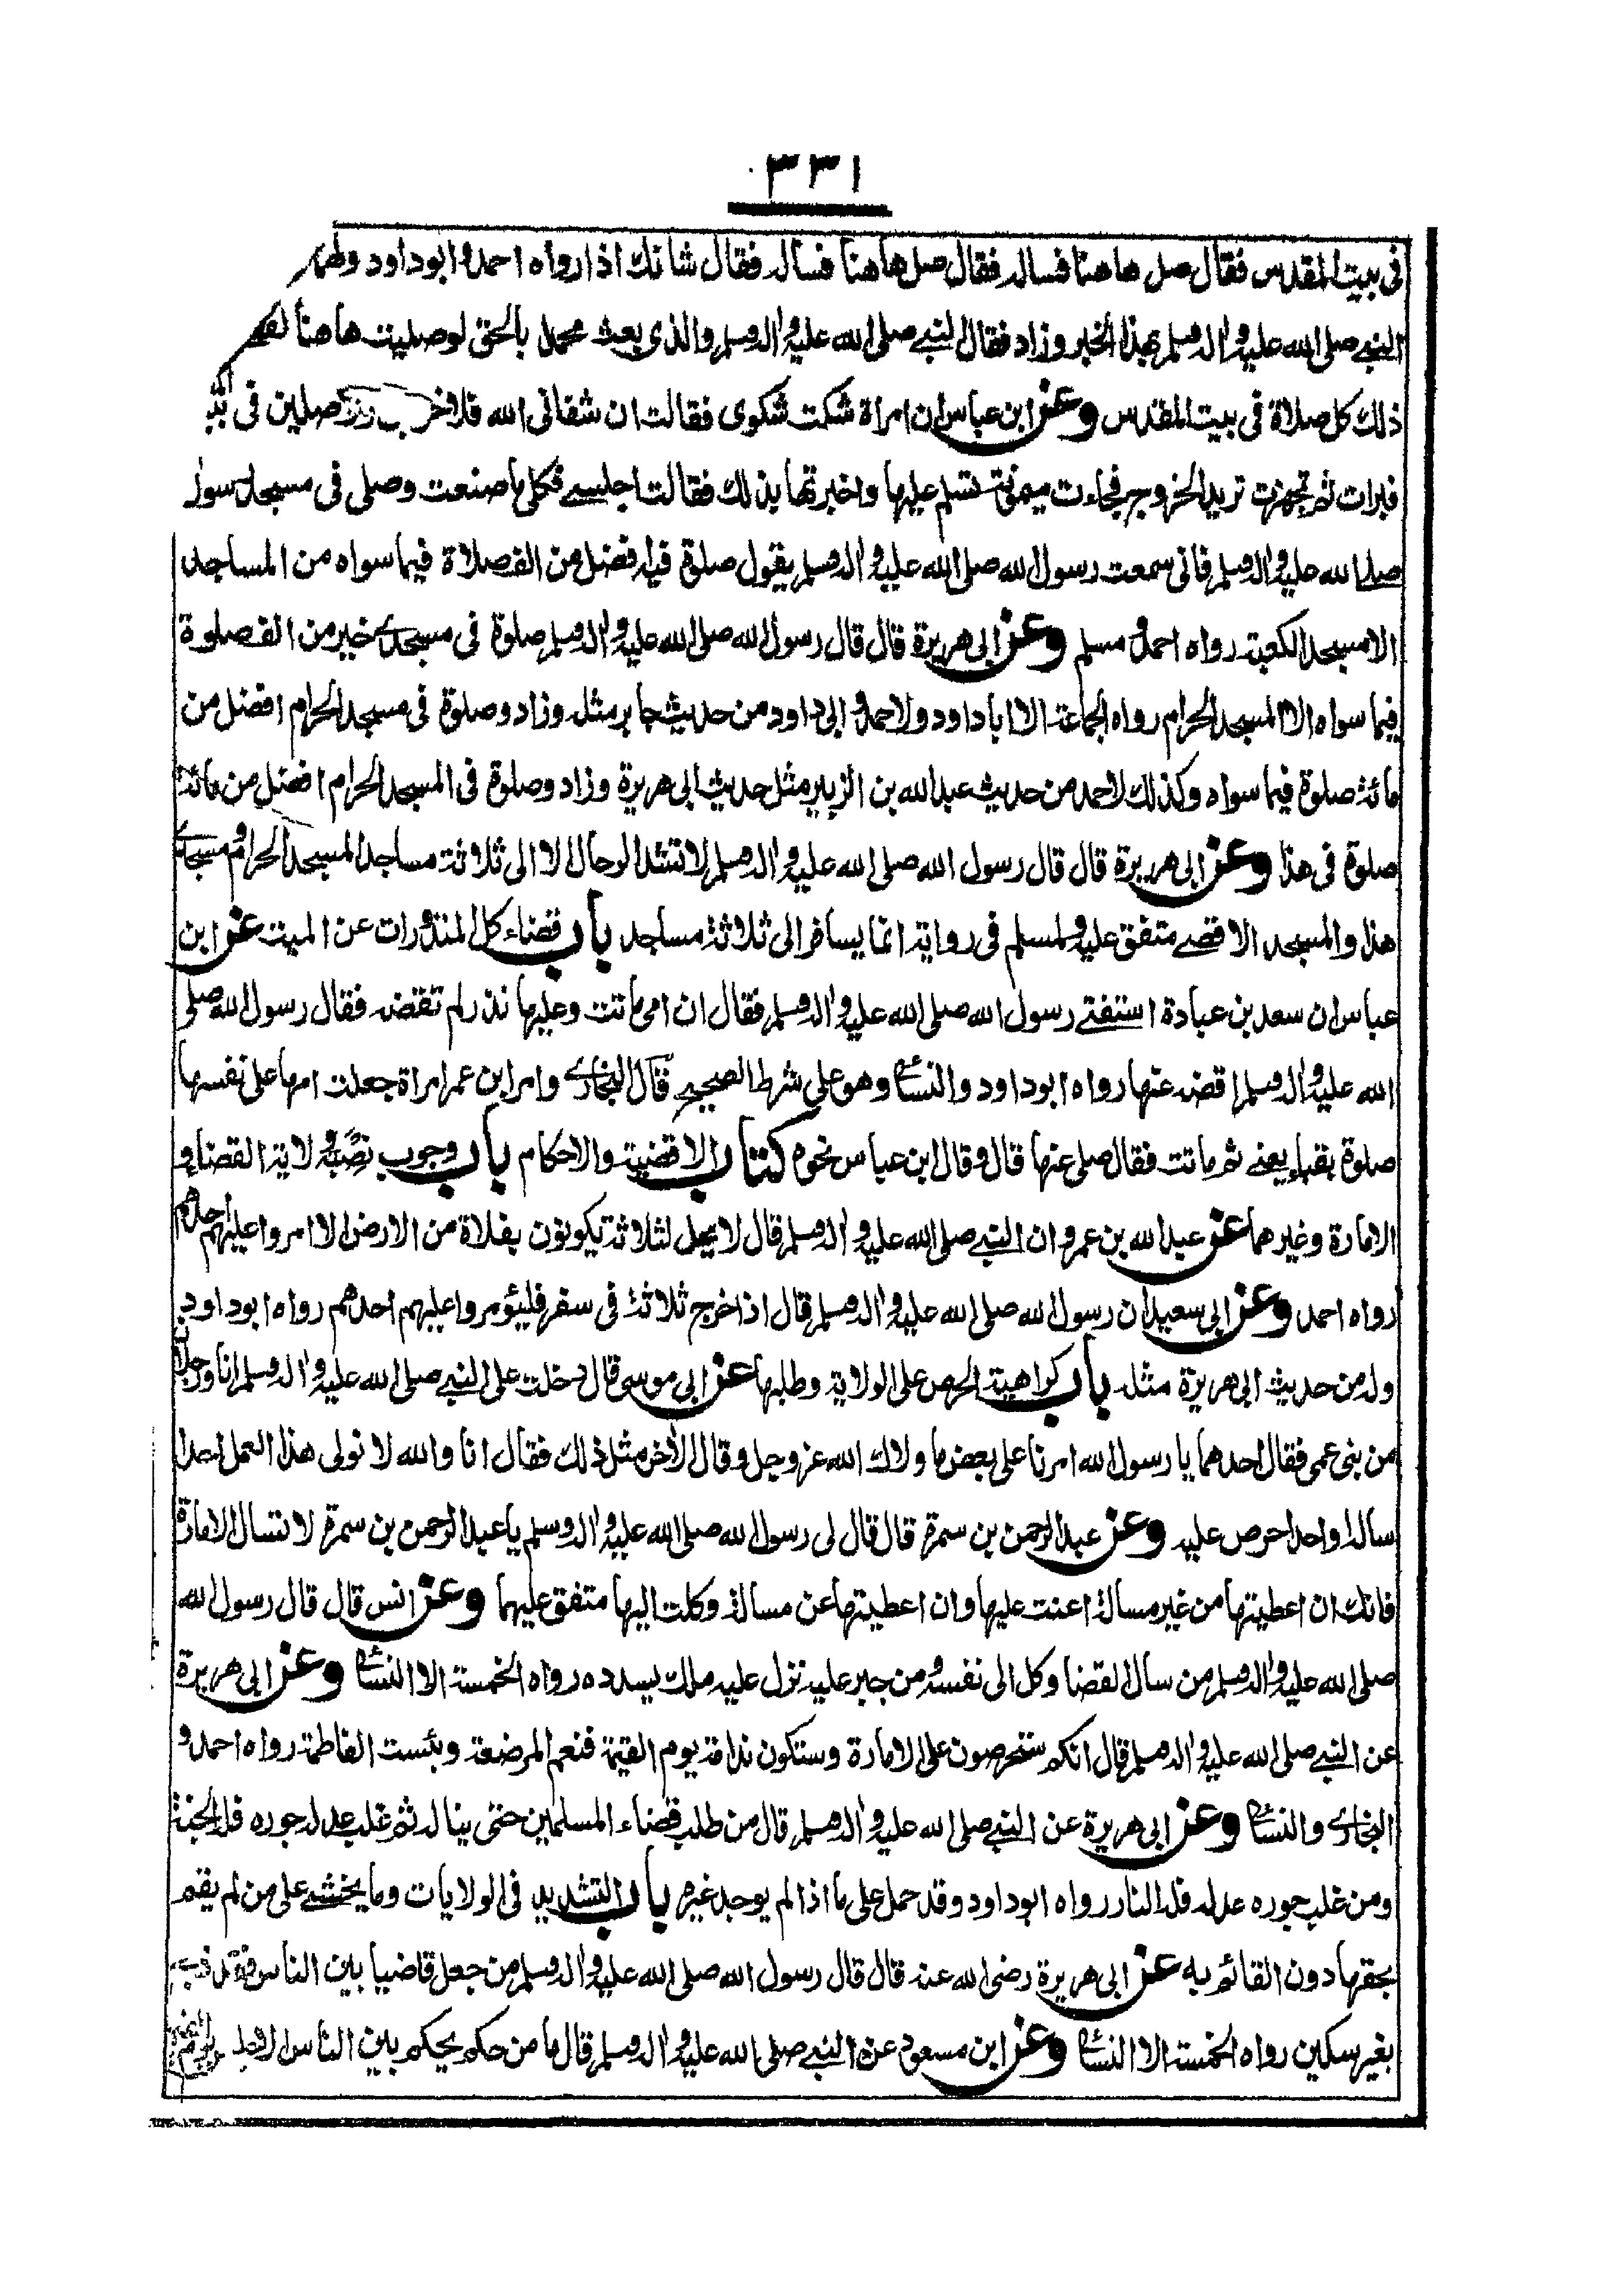 ٣٣١
فى بيت المقدس فقال صل هاهنا فساله فقال صل هاهنا فساله فقال شانك اذا رواه احمد وابوداود ولهما
النبي صلى الله عليه واله وسلم بهذا الخبر وزاد فقال النبي صلى الله عليه واله وسلم والذى بعث محمدا بالحق لوصليت هاهنا لقضى
ذلك كل صلاة فى بيت المقدس وعن ابن عباس ان امراة شكت شكوى فقالت ان شفانى الله فلاخرجن فلاصلين فى بيت
فبرات ثم تجهزت تريد الخروج فجاءت ميمونة تسلم عليها واخبرتها بذلك فقالت اجلسي فكلى ما صنعت وصلى فى مسجد رسول
صلى الله عليه واله وسلم فانى سمعت رسول الله صلى الله عليه واله وسلم يقول صلوة فيه افضل من الف صلاة فيما سواه من المساجد
الا مسجد الكعبة رواه احمد ومسلم وعن ابى هريرة قال قال رسول الله صلى الله عليه واله وسلم صلوة فى مسجدي خير من الف صلوة
فيما سواه الا المسجد الحرام رواه الجماعة الا اباداود ولاحمد وابى داود من حديث جابر مثله وزاد وصلوة فى مسجد الحرام افضل من
مائة صلوة فيما سواه وكذلك لاحمد من حديث عبدالله بن الزبير مثل حديث ابى هريرة وزاد وصلوة فى المسجد الحرام افضل من مائة
صلوة فى هذا وعن ابى هريرة قال قال رسول الله صلى الله عليه واله وسلم لا تشد الرحال الا الى ثلاثة مساجد المسجد الحرام ومسجدي
هذا والمسجد الاقصى متفق عليه ولمسلم فى رواية انما يسافر الى ثلاثة مساجد باب قضاء كل المنذورات عن الميت عن ابن
عباس ان سعد بن عبادة استفتى رسول الله صلى الله عليه واله وسلم فقال ان امى ماتت وعليها نذر لم تقضه فقال رسول الله صلى
الله عليه واله وسلم اقضه عنها رواه ابوداود والنسائى وهو على شرط الصحيح قال البخاري وامر ابن عمر امراة جعلت امها على نفسها
صلوة بقباء يعني ثم ماتت فقال صلى عنها قال وقال ابن عباس نحوه كتاب الاقضية والاحكام باب وجوب نصبة ولاية القضاء و
الامارة وغيرهما عن عبدالله بن عمرو ان النبي صلى الله عليه واله وسلم قال لا يحل لثلاثة يكونون بفلاة من الارض الا امروا عليهم احدهم
رواه احمد وعن ابى سعيد ان رسول الله صلى الله عليه واله وسلم قال اذا خرج ثلاثة فى سفر فليؤمروا عليهم احدهم رواه ابوداود
وله من حديث ابى هريرة مثله باب كراهية الحرص على الولاية وطلبها عن ابى موسى قال دخلت على النبي صلى الله عليه واله وسلم انا ورجلان
من بنى عمى فقال احدهما يا رسول الله امرنا على بعض ما ولاك الله عز وجل وقال الاخر مثل ذلك فقال انا والله لا نولى هذا العمل احدا
ساله او احدا حرص عليه وعن عبدالرحمن بن سمرة قال قال لى رسول الله صلى الله عليه واله وسلم يا عبدالرحمن بن سمرة لا تسال الامارة
فانك ان اعطيتها من غير مسالة اعنت عليها وان اعطيتها عن مسالة وكلت اليها متفق عليهما وعن انس قال قال رسول الله
صلى الله عليه واله وسلم من سال القضا وكل الى نفسه ومن جبر عليه نزل عليه ملك يسدده رواه الخمسة الا النسائى وعن ابى هريرة
عن النبي صلى الله عليه واله وسلم قال انكم ستحرصون على الامارة وستكون ندامة يوم القيمة فنعم المرضعة وبئست الفاطمة رواه احمد و
البخاري والنسائى وعن ابى هريرة عن النبي صلى الله عليه واله وسلم قال من طلب قضاء المسلمين حتى يناله ثم غلب عدله جوره فله الجنة
ومن غلب جوره عدله فله النار رواه ابوداود وقد حمل على ما اذا لم يوجد غيره باب التشديد فى الولايات وما يخشى على من لم يقم
بحقها دون القائم به عن ابى هريرة رضى الله عنه قال قال رسول الله صلى الله عليه واله وسلم من جعل قاضيا بين الناس فقد ذبح
بغير سكين رواه الخمسة الا النسائى وعن ابن مسعود عن النبي صلى الله عليه واله وسلم قال ما من حكم يحكم بين الناس الا